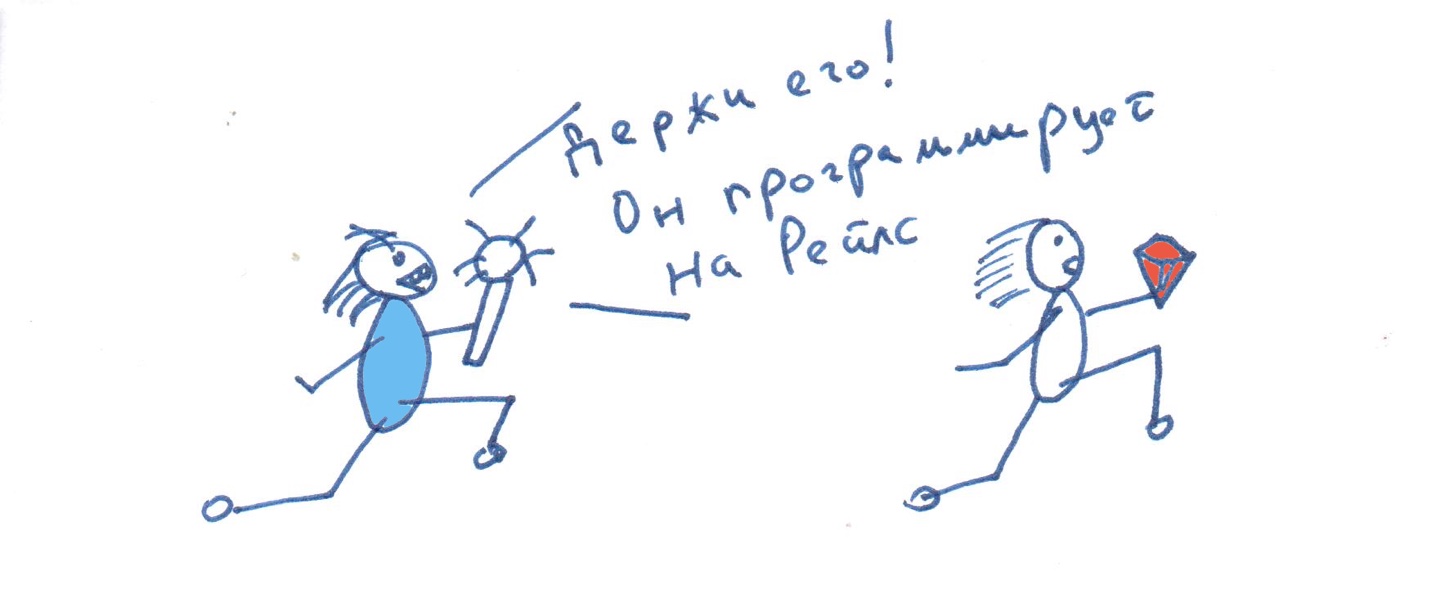 Держи его!
Он программирует
на Рейлс